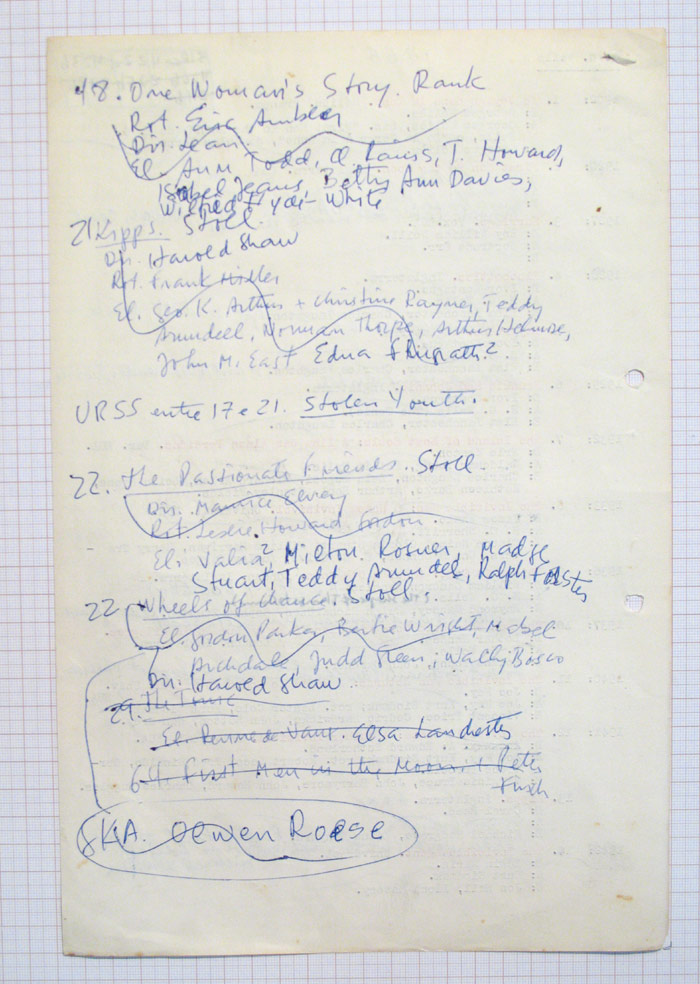 48. One Woman's Story. Rank
Rot. Eric Ambler
Dir. Lean
El. Ann Todd, Cl. Rains, T. Howard,
Isabel Jeans, Betty Ann Davies,
Wilfrid Hyde-White
21 Kipps. Stoll.
Dir. Harold Shaw
Rot. Frank Miller
El. Geo. K. Arthur + Christine Rayner, Teddy
Arundell, Norman Thorpe, Arthur Helmore,
John M. East Edna
URSS entre 17 e 21. Stolen Youth.
22. The Passionate Friends. Stoll.
Dir. Maurice Elvey
Rot. Leslie Howard Gordon
El. Valia? Milton Rosmer, Madge
Stuart, Teddy Arundel, Ralph Forster
22 Wheels of Chance. Stoll.
El. Gordon Parker, Bertie Wright, Mabel
Archdale, Judd Green; Wally Bosco
Dir. Harold Shaw
29. The Tonic
El. Elsa Lanchester
64. First Men in the Moon. + Peter
Finch